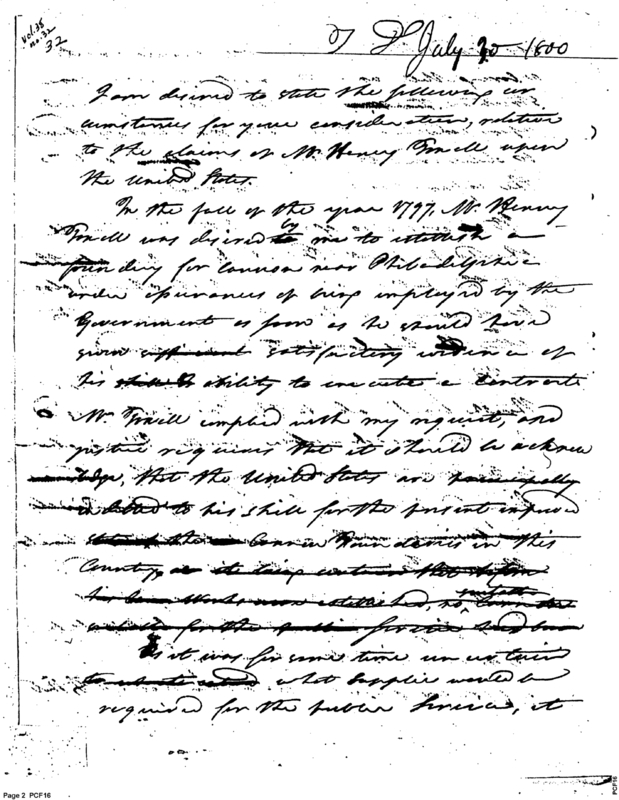 vol. 38
no. 32
32
July 30 1800
I am desired to state the following cir
cumstances for your consideration, relative
to the claims of Mr. Henry Foxall upon
the United States.
In the fall of the year 1797, Mr. Henry
by
Foxall was desired me to establish a
foundery for Cannon near Philadelphia
under assurances of being employed by the
Government as soon as he should have
given satisfactory evidence of
his ability to execute a Contract
Mr. Foxall complied with my request, and
justice requires that it should be acknow
ledge, that the United States are principally
indebted to his skill for the present improved
state of the Cannon Founderies in this
Country, as it being certain that before
his works were established, no
for the service had been
As it was for some time uncertain
what supplies would be
required for the public Service, it
Page 2 PCF16
PCF16